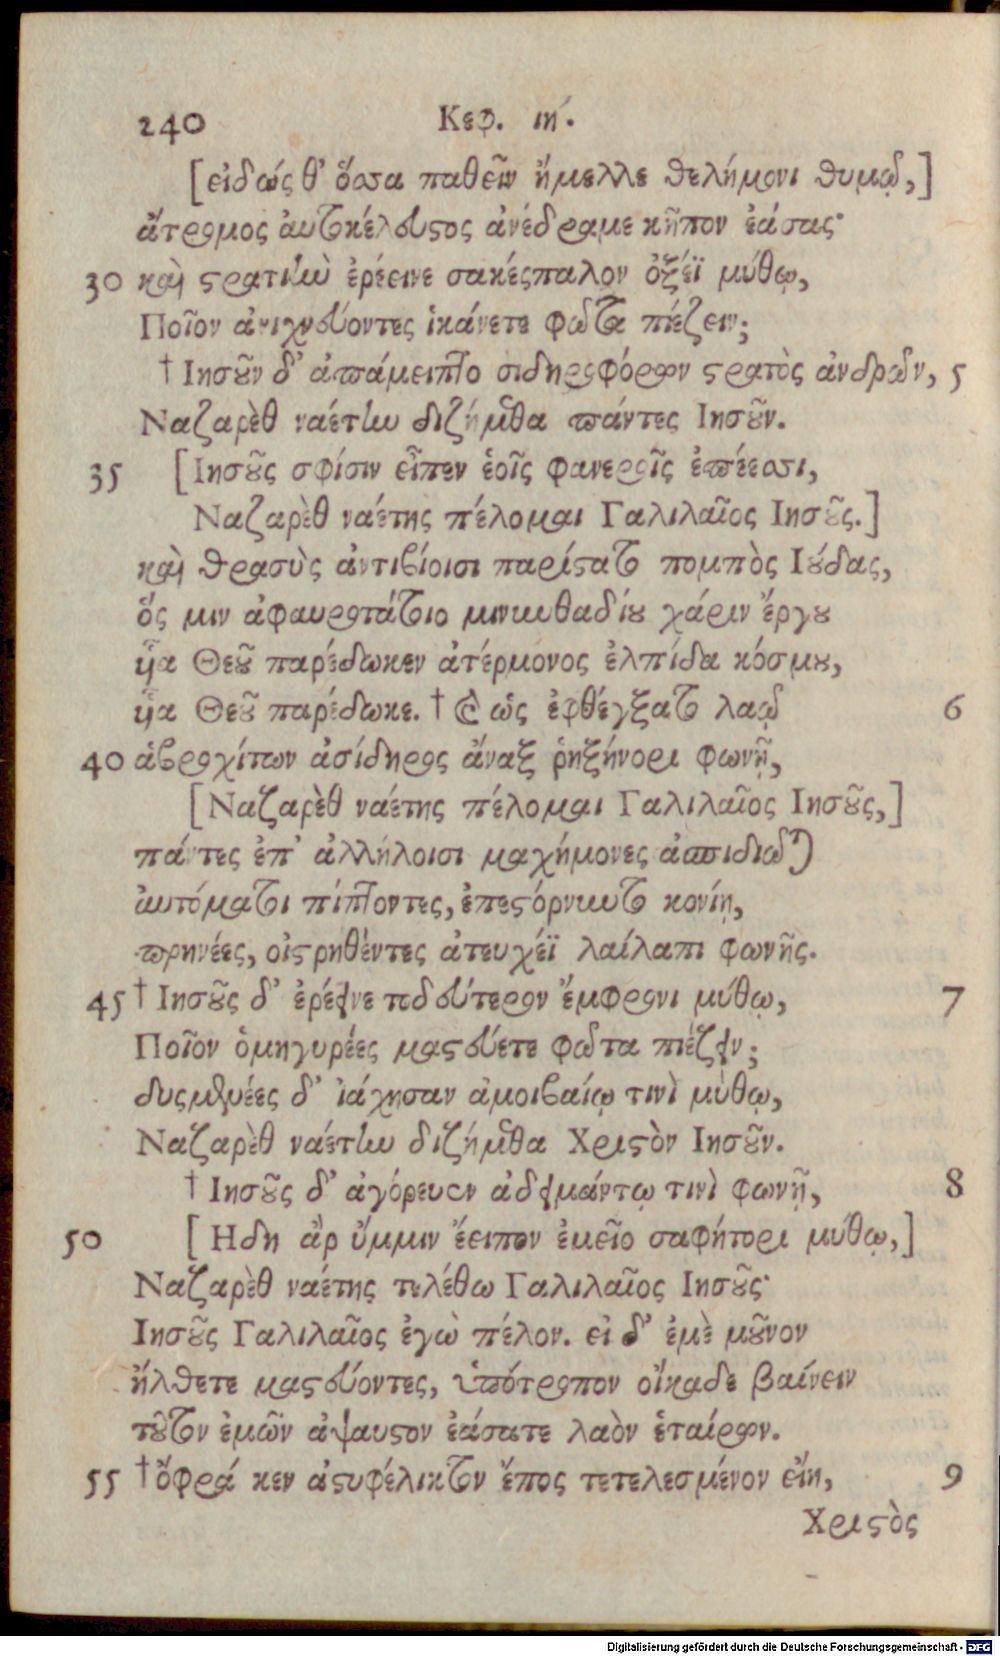 240 Κεφ. ιή.
[εἰδώς θ' ὅσσα παθεῖν ἤμελλε θελήμονι θυμῷ,]
ἄτρομος αὐτοκέλευστος ἀνέδραμε κῆπον ἐάσας·
30 καὶ στρατιὴν ἐρέεινε σακέσπαλον ὀξέϊ μύθῳ,
Ποῖον ἀνιχνεύοντες ἱκάνετε φῶτα πιέζειν;
† Ιησοῦν δ' ἀπάμειπτο σιδηροφόρων στρατὸς ἀνδρῶν, 5
Ναζαρὲθ ναέτην διζήμεθα πάντες Ιησοῦν.
35 [Ιησοῦς σφίσιν εἶπεν ἑοῖς φανεροῖς ἐπέεσσι,
Ναζαρὲθ ναέτης πέλομαι Γαλιλαῖος Ιησοῦς.]
καὶ θρασὺς ἀντιβίοισι παρίστατο πομπὸς Ιούδας,
ὅς μιν ἀφαυροτάτοιο μινυνθαδίου χάριν ἔργου
ἧα Θεοῦ παρέδωκεν ἀτέρμονος ἐλπίδα κόσμου,
ἧα Θεοῦ παρέδωκε. † Καὶ ὡς ἐφθέγξατο λαῷ 6
40 ἁβροχίτων ἀσίδηρος ἄναξ ῥηξήνορι φωνῇ,
[Ναζαρὲθ ναέτης πέλομαι Γαλιλαῖος Ιησοῦς,]
πάντες ἐπ' ἀλλήλοισι μαχήμονες ἀσπιδιῶται
αὐτόματοι πίπτοντες, ἐπεστόρνυντο κονίῃ,
πρηνέες, οἰστρηθέντες ἀτευχέϊ λαίλαπι φωνῆς.
45 † Ιησοῦς δ' ἐρέεινε τὸ δεύτερον ἔμφρονι μύθῳ, 7
Ποῖον ὁμηγυρέες μαστεύετε φῶτα πιέζειν;
δυσμενέες δ' ἰάχησαν ἀμοιβαίῳ τινὶ μύθῳ,
Ναζαρὲθ ναέτην διζήμεθα Χριστὸν Ιησοῦν.
† Ιησοῦς δ' ἀγόρευεν ἀδειμάντῳ τινὶ φωνῇ, 8
50 [Ηδη ἂρ ὔμμιν ἔειπον ἐμεῖο σαφήτορι μύθῳ,]
Ναζαρὲθ ναέτης τελέθω Γαλιλαῖος Ιησοῦς·
Ιησοῦς Γαλιλαῖος ἐγὼ πέλον. εἰ δ' ἐμὲ μοῦνον
ἤλθετε μαστεύοντες, ὑπότροπον οἴκαδε βαίνειν
τοῦτον ἐμῶν ἀψαυστον ἐάσατε λαὸν ἑταίρων.
55 † ὄφρά κεν ἀστυφέλικτον ἔπος τετελεσμένον εἴη, 9
Χριστὸς
Digitalisierung gefördert durch die Deutsche Forschungsgemeinschaft - DFG